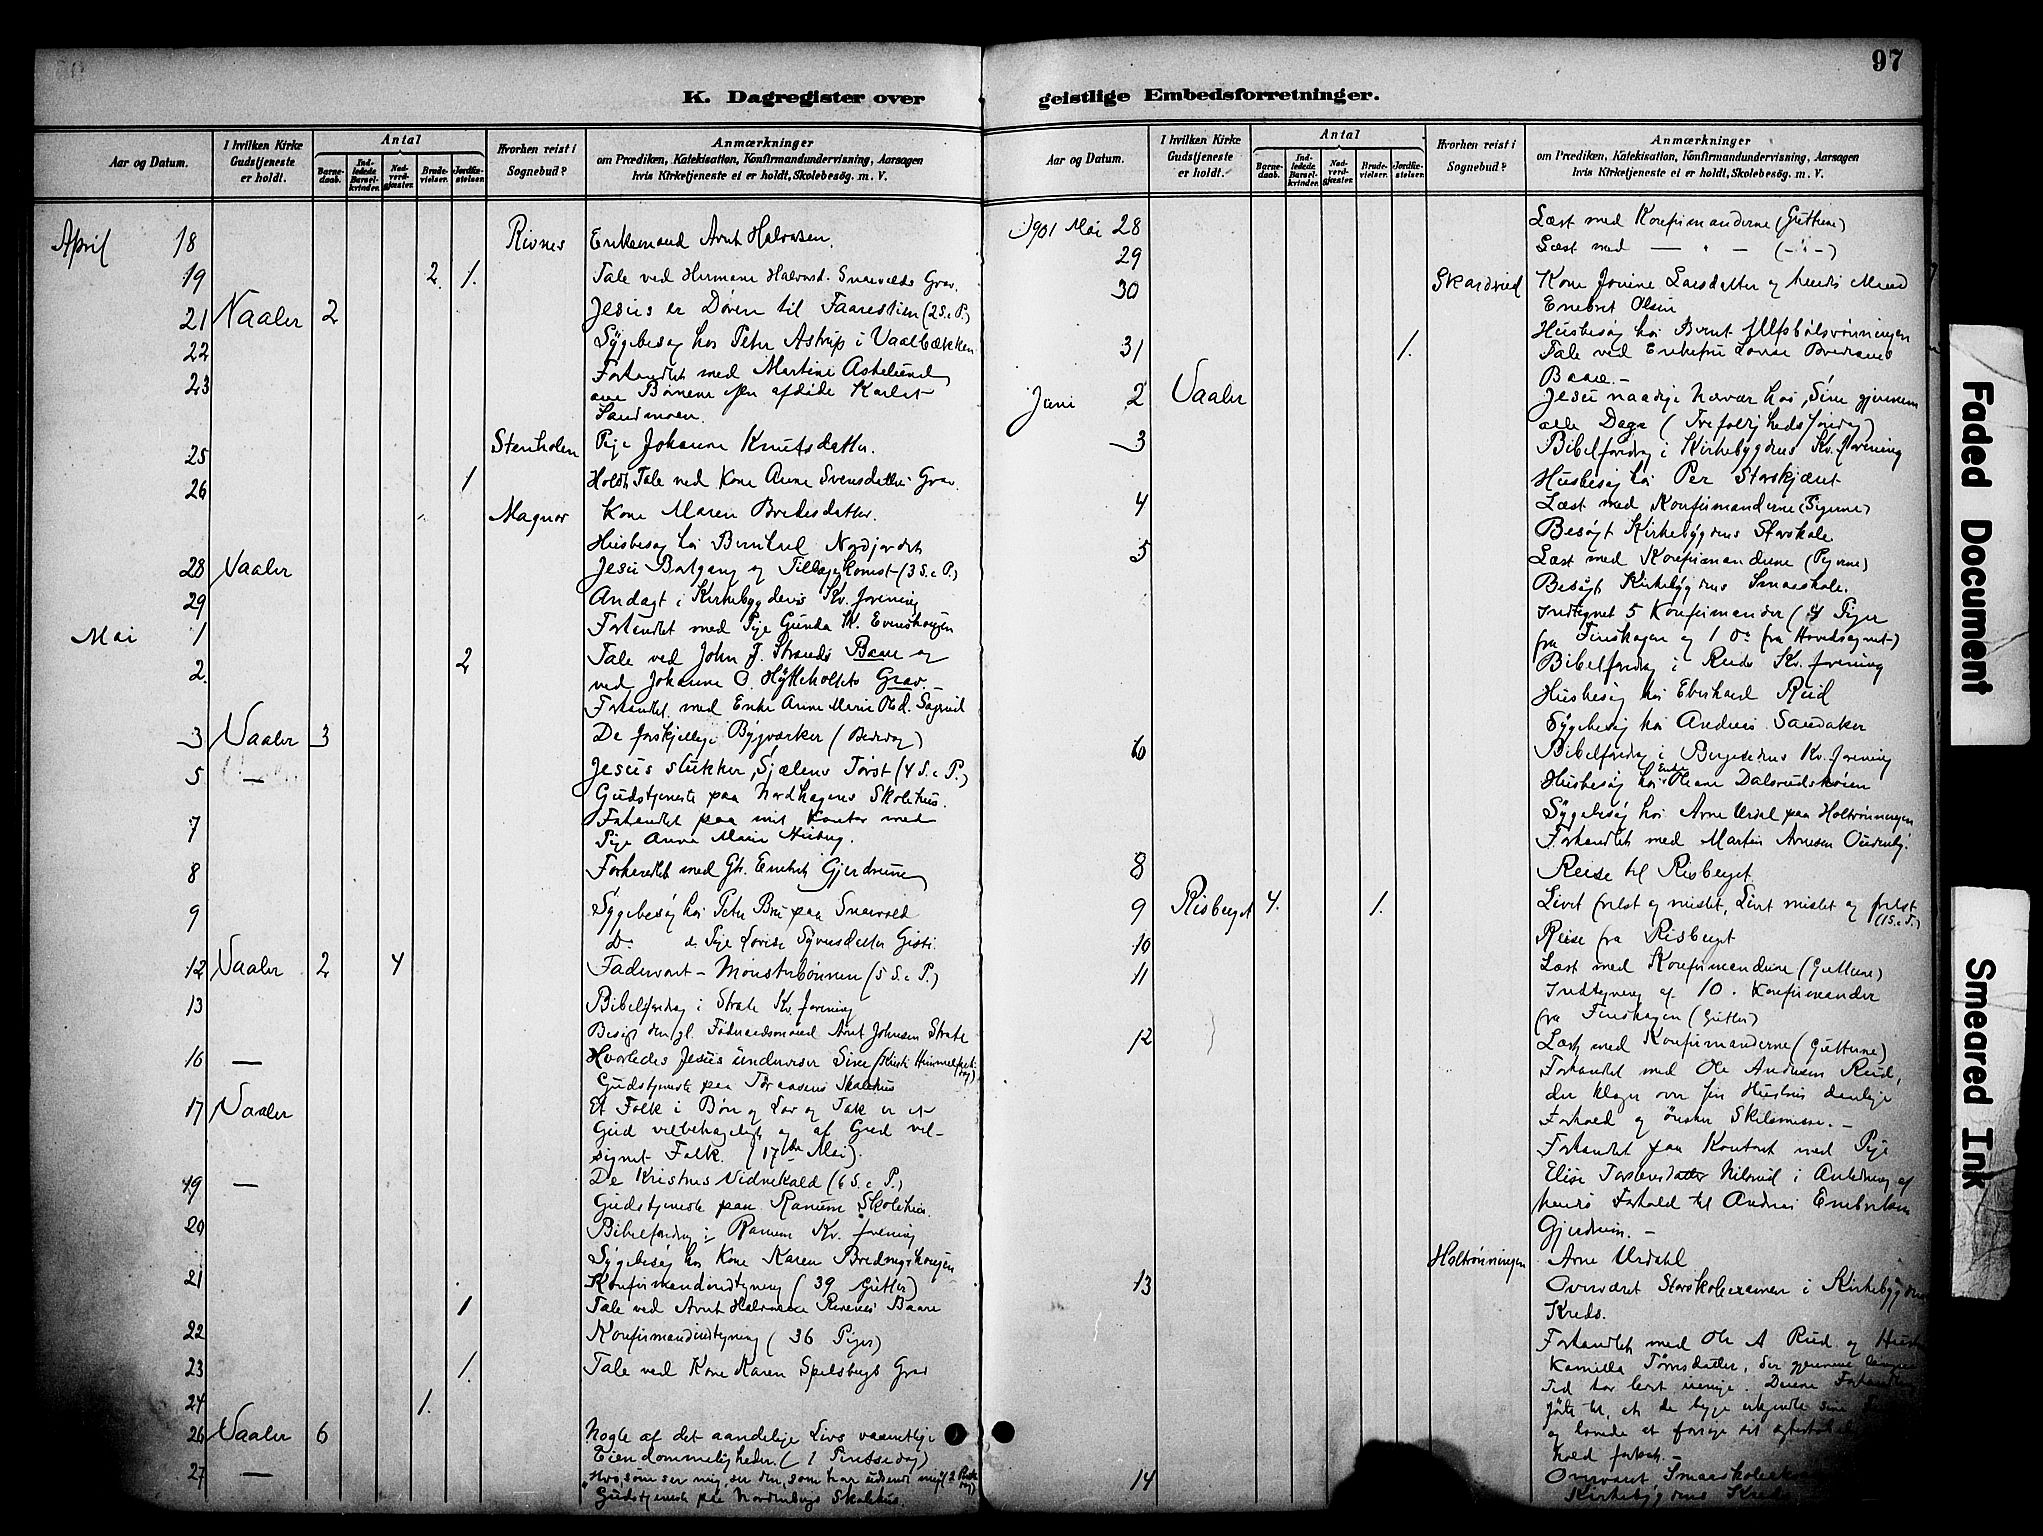 97
K. Dagregister over geistlige Embedsforretninger.
Aar og Datum.
I hvilken Kirke Gudstjeneste er holdt.
Antal
Barne-daab.
Ind-ledede Barsel-kvinder.
Nad-verd-gjæster.
Brude-vielser.
Jordfæ-stelser.
Hvorhen reist i Sognebud?
Anmærkninger
om Prædiken, Katekisation, Konfirmandundervisning, Aarsagen
hvis Kirketjeneste ei er holdt, Skolebesøg. m. V.
April 18 Enkemand Arnt Halvorsen.
19 2. 1. Tale ved Hermane Halvorsd. Grav.
21 Vaaler 2 Jesus er Døren til Faarestien (2 S. e. P.)
22 Sygebesøg hos Peter Astrup i Vaalbækken
23 Forhandlet med Martine
Børnene afdøde
Sandmoen.
25 Stenholen Pige Johanne Knutsdatter.
26 1 Holdt Tale ved Kone Anne Svensdatters Grav.
Magnor Kone Maren Bredesdatter.
Husbesøg hos Bernhard Nordjordet
28 Vaaler Jesu Bortgang og Tilbagekomst (3 S. e. P.)
29 Andagt i Kirkebygdens Kv. forening
Mai 1 Forhandlet med Pige Gunda
2. 2 Tale ved John J. Strands Baare og
ved Johanne O. Hytteholtets Grav.
Forhandlet med Enke Anne Marie
3 Vaaler 3 De forskjellige Bygværker (Bededag)
5 — Jesus slukker Sjælens Tørst (4 S. e. P.)
Gudstjeneste paa Nordhagens Skolehus.
7 Forhandlet paa mit Kontor med
Pige Anna Marie
8 Forhandlet med Gb. Embret Gjerdrum
9 Sygebesøg hos Peter Bru paa Snarvold
Do. Pige Lovise Syversdatter
12 Vaaler 2 4 Fadervor – Mønsterbønnen (5 S. e. P.)
13 Bibelforedrag i Strate Kv. forening
Besøgt den gl. Arnt Johnsen Strate
16 — Hvorledes Jesus underviser Sine (Kristi Himmelfartsdag)
Gudstjeneste paa Skolehus
17 Vaaler Et Folk i Bøn og Lov og Tak er et
Gud velbehageligt og af Gud vel-
signet Folk. (17de Mai).
19 — De Kristnes Vidnekald (6 S. e. P.)
Gudstjeneste paa Ranum Skolehus.
20 Bibelforedrag i Ranum Kv. forening
Sygebesøg hos Kone Karen
21 Konfirmandindtegning (39 Gutter)
1 Tale ved Arnt Halvorsens Baare
22 Konfirmandindtegning (36 Piger)
23 1. Tale ved Kone Karen Spelsbergs Grav
24 1.
26 Vaaler 6 Nogle af det aandelige Livs væsentlige
Eiendommeligheder. (1 Pintsedag)
27 — Hvo, som ser mig, ser den, som har udsendt mig (2 Pintsedag)
Gudstjeneste paa Skolehus.
1901 Mai 28 Læst med Konfirmanderne (Guttene)
29 Læst med — " — (— " —)
30 Kone Jovine Larsdatter og hendes Mand
Embret Olsen
Husbesøg hos Bernt
31 1. Tale ved Enkefru Lovise
Baare. –
Juni 2 Vaaler Jesu naadige Nærvær hos Sine gjennem
alle Dage (Trefoldighedssøndag)
3 Bibelforedrag i Kirkebygdens Kv. forening
Husbesøg hos Per Storskjæret
4 Læst med Konfirmanderne (Pigerne)
Besøgt Kirkebygdens Storskole
5 Læst med Konfirmanderne (Pigerne)
Besøgt Kirkebygdens Smaaskole.
Indtegnet 5 Konfirmander (4 Piger
fra Finskogen og 1 do. fra Hovedsognet)
Bibelforedrag i Ruds Kv. forening
Husbesøg hos Eberhard Rud
Sygebesøg hos Andreas Sandaker
6 Bibelforedrag i Kv. forening
Husbesøg hos Enke Oliane
Sygebesøg hos Arne paa Holtrønningen
Forhandlet med Martin Arnesen
8 Reise til Risberget
9 Risberget 4. 1. Livet frelst og mistet, Livet mistet og frelst
(1 S. e. T.)
10 Reise fra Risberget
11 Læst med Konfirmanderne (Guttene)
Indtegning af 10 Konfirmander
fra Finskogen (Gutter)
12 Læst med Konfirmanderne (Guttene)
Forhandlet med Ole Andersen Rud,
der klager over sin Hustrus daarlige
Forhold og ønsker Skilsmisse. –
Forhandlet paa Kontoret med Pige
Elise i Anledning af
hendes Forhold til Andreas Embretsen
Gjerdrum. –
Holtrønningen Arne Urdahl
13 Overværet Storskoleexamen i Kirkebygdens
Kreds.
Forhandlet med Ole A. Rud og Hustru
Kamilla der gjennem længere
Tid har levet uenige. Denne Forhandling
førte til, at de begge erkjendte sine
og lovede at forsøge
14 Overværet Smaaskole
Kirkebygdens Kreds
Faded Document
Smeared Ink